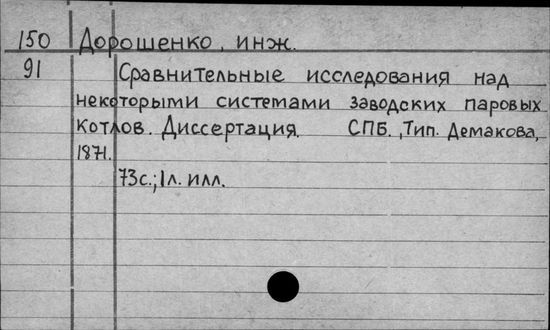 150 Дорошенко, инж.
91 Сравнительные исследования над
некоторыми системами заводских паровых
котлов. Диссертация. СПБ., Тип. Демакова,
1871.
73с.; 1л. илл.